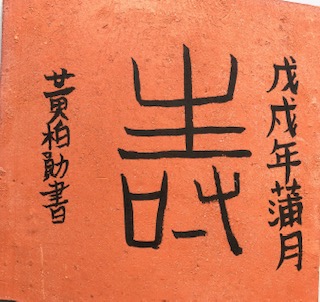 戊戌年蒲月
黃柏勛書